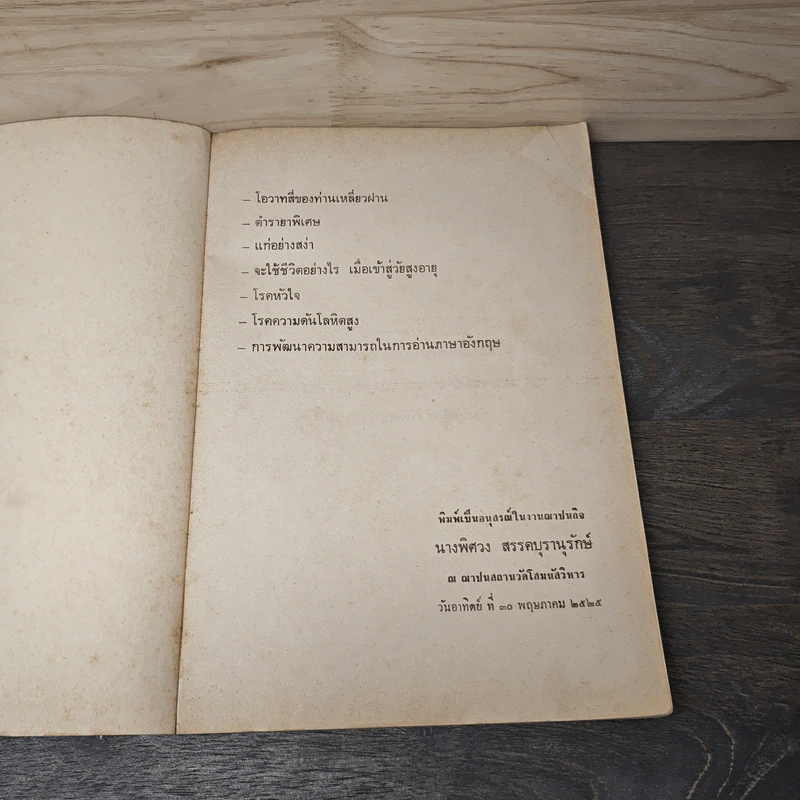 – โอวาทสี่ของท่านเหลี่ยวฝาน
– ตำรายาพิเศษ
– แก่อย่างสง่า
– จะใช้ชีวิตอย่างไร เมื่อเข้าสู่วัยสูงอายุ
– โรคหัวใจ
– โรคความดันโลหิตสูง
– การพัฒนาความสามารถในการอ่านภาษาอังกฤษ
พิมพ์เป็นอนุสรณ์ในงานฌาปนกิจ
นางพิศวง สรรคบุรานุรักษ์
ณ ฌาปนสถานวัดโสมนัสวิหาร
วันอาทิตย์ ที่ ๓๐ พฤษภาคม ๒๕๒๕